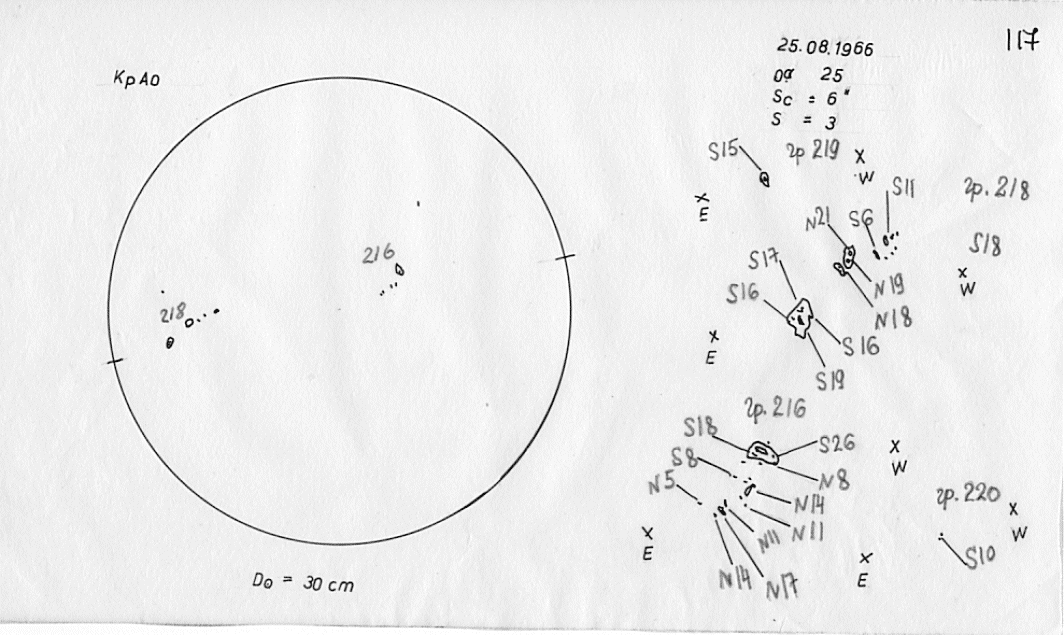 117
25.08.1966
КрАО
Sc = 6"
S = 3
S15
гр 219
X
W
X
E
S11
гр. 218
N21
S6
S18
216
S17
X
W
N19
S16
N18
218
X
E
S16
S19
гр. 216
S18
S26
X
W
S8
N8
N5
гр. 220
N14
X
W
N11
N11
X
E
X
E
S10
N14
N17
D⊙ = 30 cm